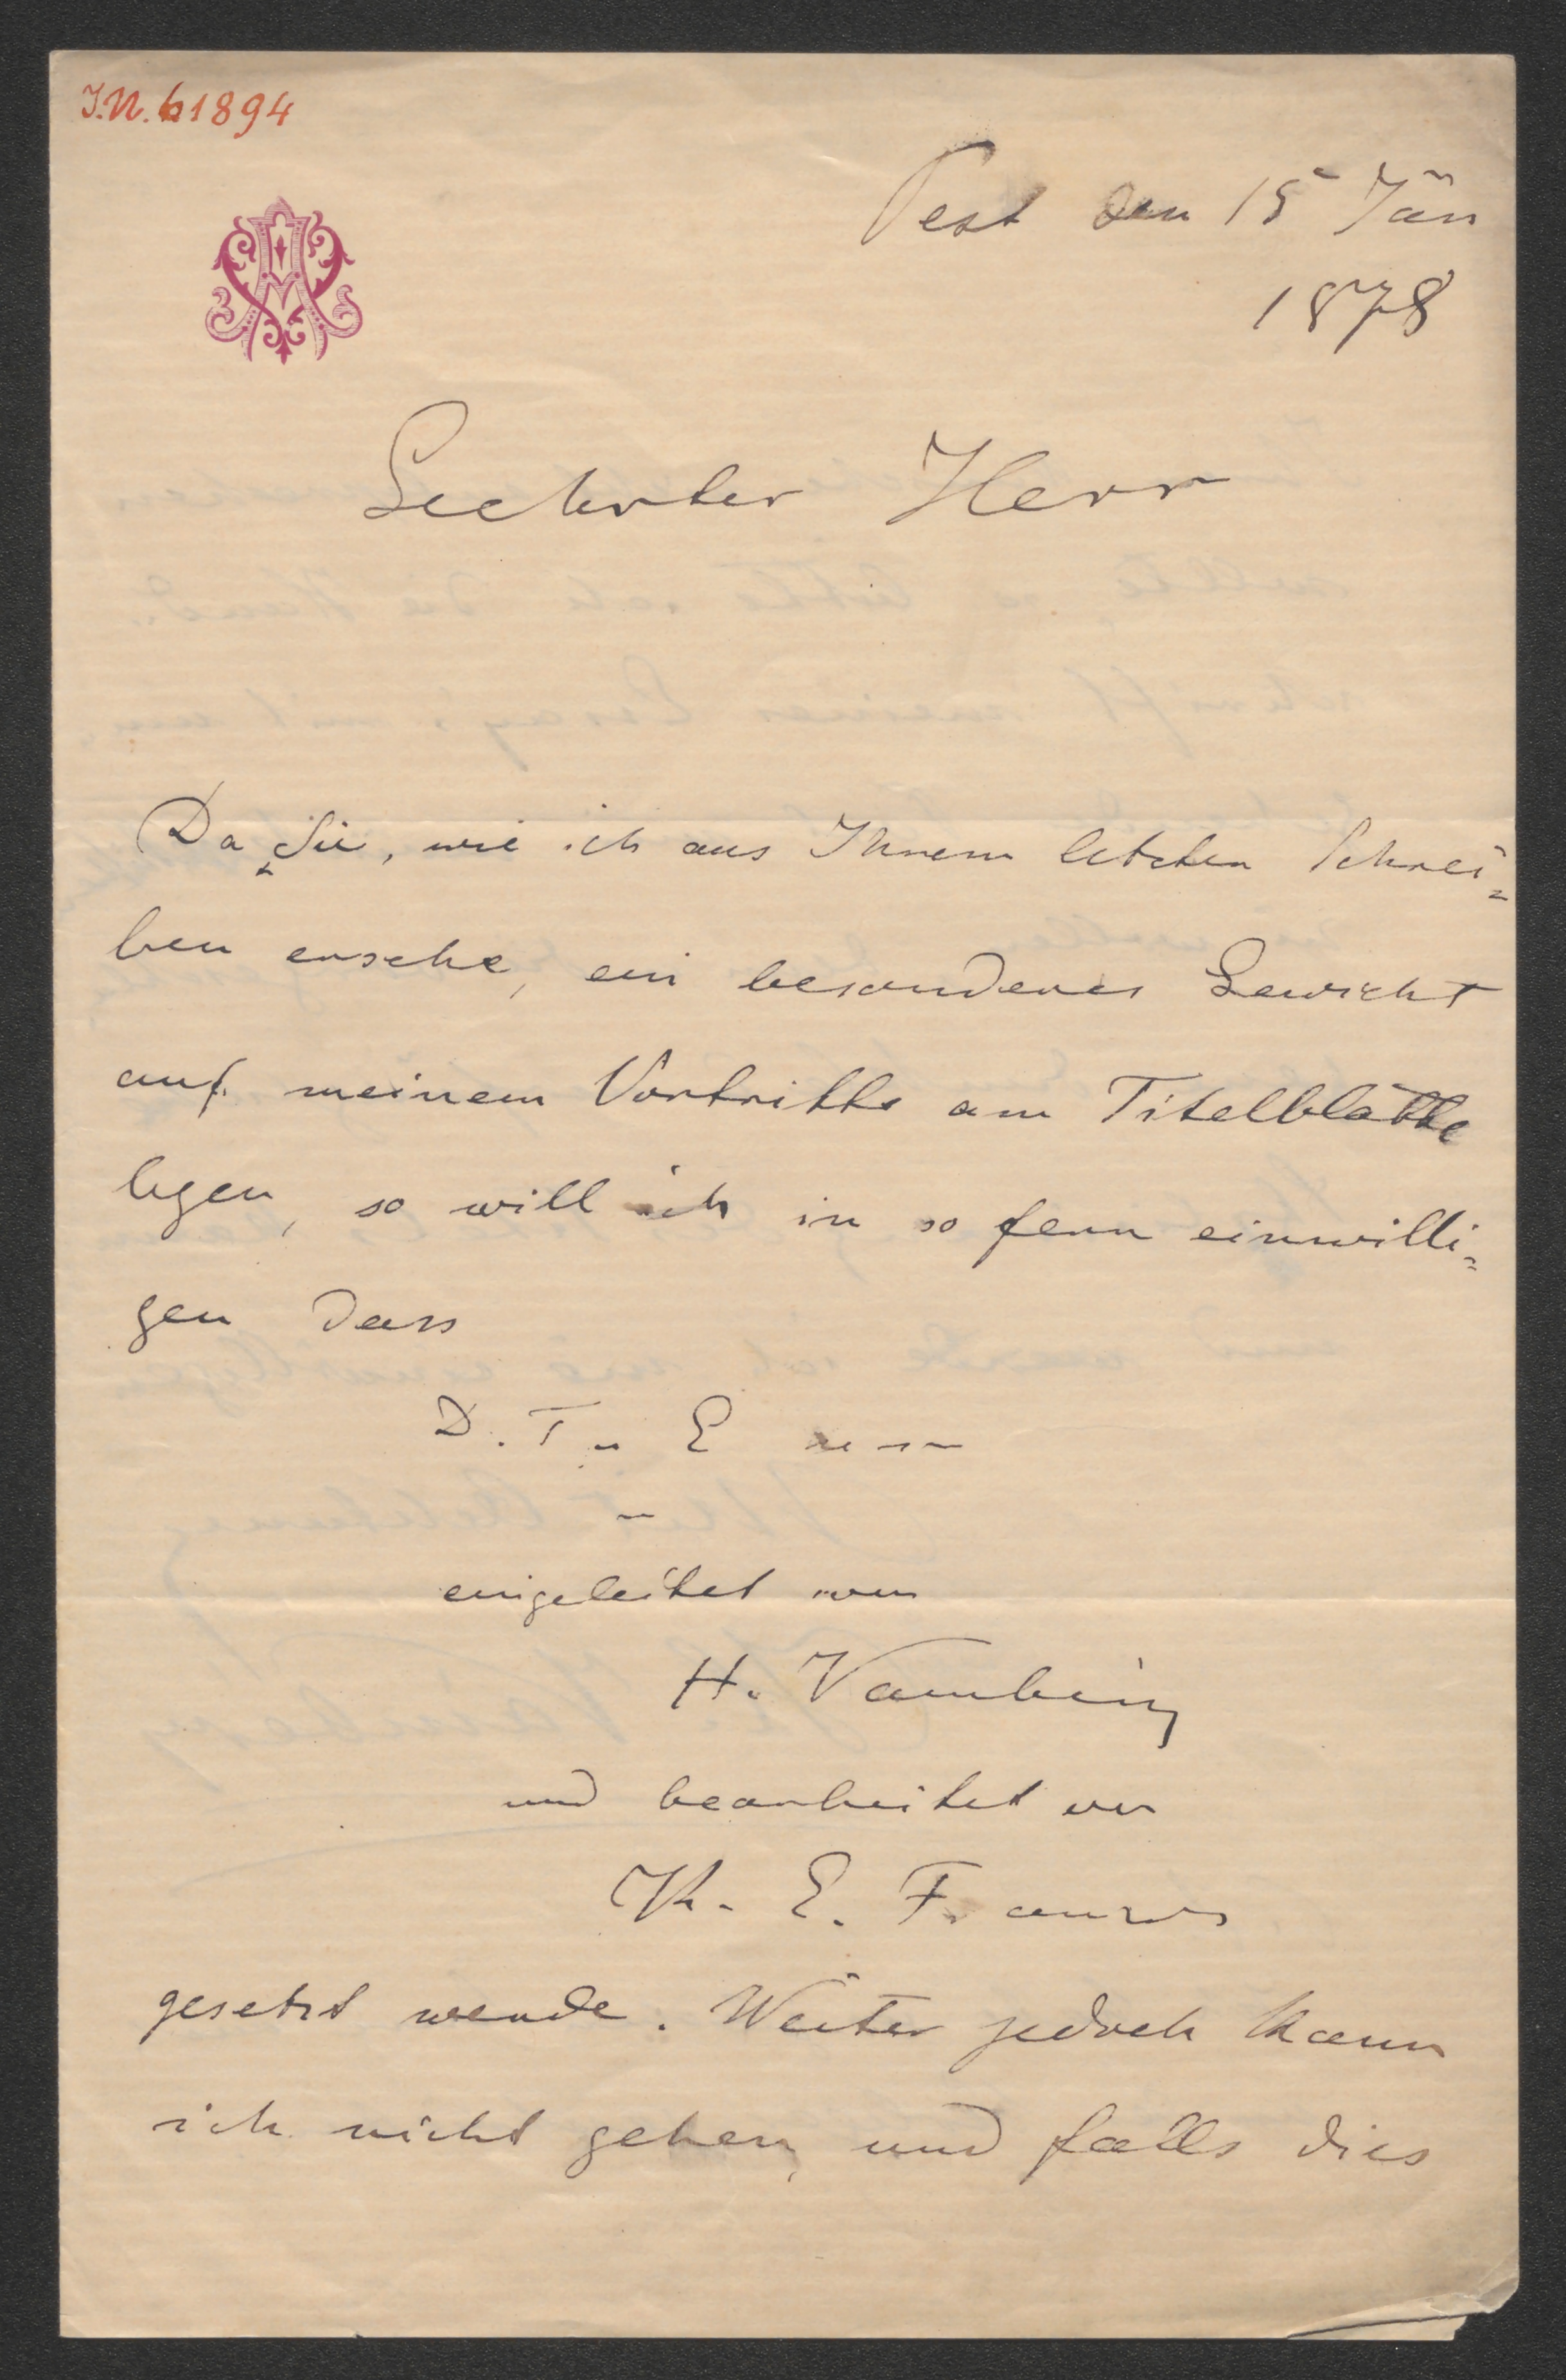 I.N. 61894
Pest den 15 Jän
1878
Geehrter Herr
Da Sie, wie ich aus Ihrem letzten Schrei=
ben ersehe, ein besonderes Gewicht
auf meinem Vortritte am Titelblatte
legen, so will ich in so fern einwilli=
gen dass
D. T. u. E
eingeleitet von
H. Vambéry
und bearbeitet von
K. E. Franzos
gesetzt werde. Weiter jedoch kann
ich nicht gehen, und falls dies